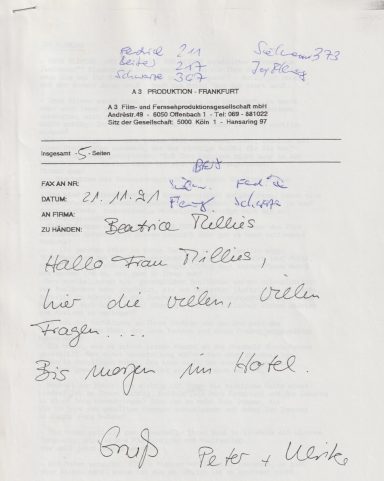 211
Beiter 217
Schwarze 367
373
A 3 PRODUKTION - FRANKFURT
A 3 Film- und Fernsehproduktionsgesellschaft mbH
Andréstr.49 - 6050 Offenbach 1 - Tel: 069 - 881022
Sitz der Gesellschaft: 5000 Köln 1 - Hansaring 97
Insgesamt -5- Seiten
FAX AN NR:
DATUM: 21.11.91
AN FIRMA:
ZU HÄNDEN: Beatrice Millies
Hallo Frau Millies,
hier die vielen, vielen
Fragen....
Bis morgen im Hotel.
Gruß Peter + Ulrike